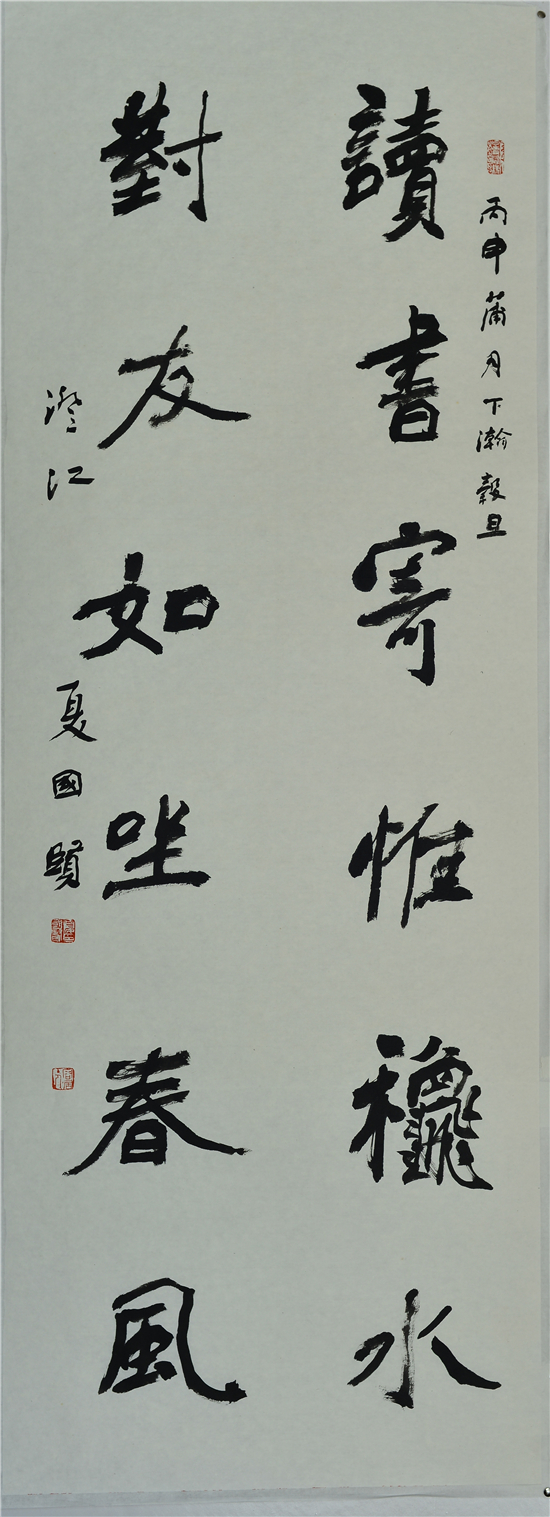 丙申蒲月下瀚穀旦
讀書寄惟龝水
對友如坐春風
澄江夏國賢